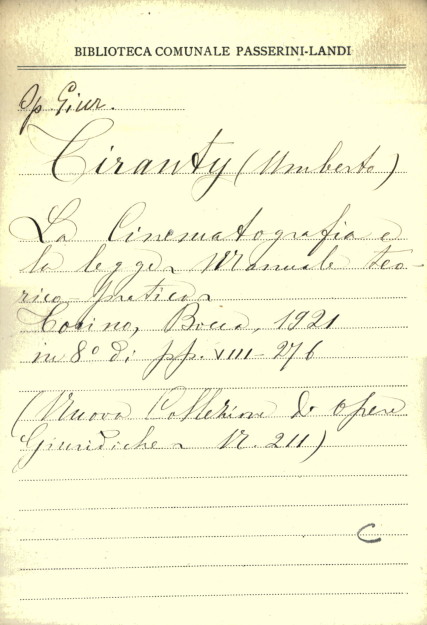 BIBLIOTECA COMUNALE PASSERINI-LANDI
Op. Giur.
Tiranty (Umberto)
La Cinematografia e
la legge. Manuale teo-
rico pratico.
Torino, Bocca, 1921
in 8° di pp. VIII-276
(Nuova Collezione di opere
Giuridiche. N. 211)
C